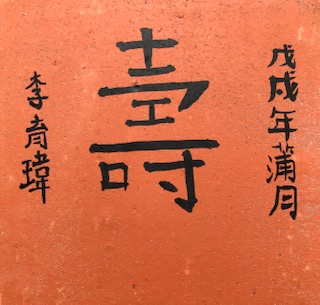 戊戌年蒲月
壽
李育瑋